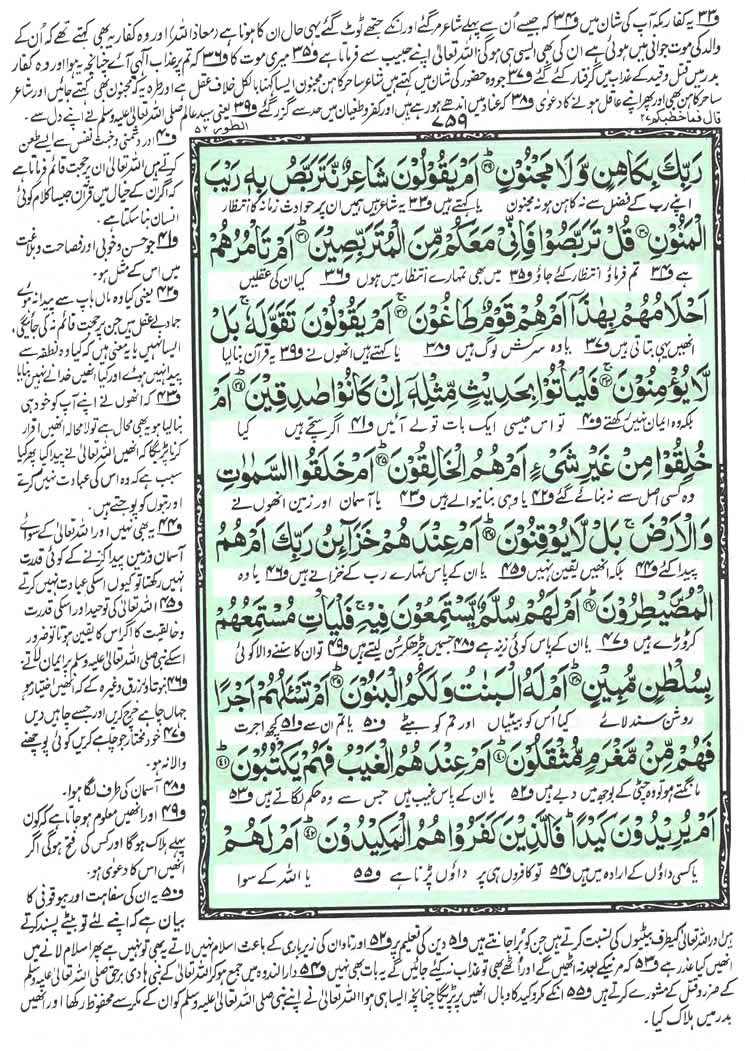 ف۳۳ یہ کفار مکہ آپ کی شان میں ف۳۴ کہ جیسے اُن سے پہلے شاعر مر گئے اور انکے جتھے ٹوٹ گئے یہی حال ان کا ہونا ہے (معاذ اللہ) اور وہ کفار یہ بھی کہتے تھے کہ اُن کے
والد کی موت جوانی میں ہوئی ہے ان کی بھی ایسی ہی ہوگی اللہ تعالیٰ اپنے حبیب سے فرماتا ہے ف۳۵ میری موت کا ف۳۶ کہ تم پر عذاب الٰہی آئے چنانچہ یہ ہوا اور وہ کفار
بدر میں قتل و قید کے عذاب میں گرفتار کئے گئے ف۳۷ جو وہ حضور کی شان میں کہتے ہیں شاعر ساحر کاہن مجنون ایسا کہنا بالکل خلاف عقل ہے اور طرہ یہ کہ مجنون بھی کہتے جائیں اور شاعر
ساحر کاہن بھی اور پھر اپنے عاقل ہونے کا دعویٰ ف۳۸ کہ عناد میں اندھے ہو رہے ہیں اور کفر و طغیان میں حد سے گزر گئے ف۳۹ یعنی سید عالم صلی اللہ تعالیٰ علیہ وسلم نے اپنے دل سے۔
قال فما خطبکم ۲۷
۷۵۹
الطور ۵۲
رَبِّكَ بِكَاهِنٍ وَّلَا مَجْنُوْنٍ ۲۹ اَمْ يَقُوْلُوْنَ شَاعِرٌ نَّتَرَبَّصُ بِهٖ رَيْبَ
اپنے رب کے فضل سے نہ کاہن ہو نہ مجنون یا کہتے ہیں ف۳۳ یہ شاعر ہیں ہمیں ان پر حوادث زمانہ کا انتظار
الْمَنُوْنِ ۳۰ قُلْ تَرَبَّصُوْا فَاِنِّيْ مَعَكُمْ مِّنَ الْمُتَرَبِّصِيْنَ ۳۱ اَمْ تَاْمُرُهُمْ
ہے ف۳۴ تم فرماؤ انتظار کئے جاؤ ف۳۵ میں بھی تمہارے انتظار میں ہوں ف۳۶ کیا ان کی عقلیں
اَحْلَامُهُمْ بِهٰذَآ اَمْ هُمْ قَوْمٌ طَاغُوْنَ ۳۲ اَمْ يَقُوْلُوْنَ تَقَوَّلَهٗ ۚ بَلْ
انھیں یہی بتاتی ہیں ف۳۷ یا وہ سرکش لوگ ہیں ف۳۸ یا کہتے ہیں انھوں نے ف۳۹ یہ قرآن بنالیا
لَّا يُؤْمِنُوْنَ ۳۳ فَلْيَاْتُوْا بِحَدِيْثٍ مِّثْلِهٖٓ اِنْ كَانُوْا صٰدِقِيْنَ ۳۴ اَمْ
بلکہ وہ ایمان نہیں رکھتے ف۴۰ تو اس جیسی ایک بات تو لے آئیں ف۴۱ اگر سچے ہیں کیا
خُلِقُوْا مِنْ غَيْرِ شَيْءٍ اَمْ هُمُ الْخَالِقُوْنَ ۳۵ اَمْ خَلَقُوا السَّمٰوٰتِ
وہ کسی اصل سے نہ بنائے گئے ف۴۲ یا وہی بنانیوالے ہیں ف۴۳ یا آسمان اور زمین انھوں نے
وَالْاَرْضَ ۚ بَلْ لَّا يُوْقِنُوْنَ ۳۶ اَمْ عِنْدَهُمْ خَزَآئِنُ رَبِّكَ اَمْ هُمُ
پیدا کئے ف۴۴ بلکہ انھیں یقین نہیں ف۴۵ یا ان کے پاس تمہارے رب کے خزانے ہیں ف۴۶ یا وہ
الْمُصَۜيْطِرُوْنَ ۳۷ اَمْ لَهُمْ سُلَّمٌ يَّسْتَمِعُوْنَ فِيْهِ ۚ فَلْيَاْتِ مُسْتَمِعُهُمْ
کڑوڑے ہیں ف۴۷ یا ان کے پاس کوئی زینہ ہے ف۴۸ جسمیں چڑھ کر سن لیتے ہیں ف۴۹ تو ان کا سننے والا کوئی
بِسُلْطٰنٍ مُّبِيْنٍ ۳۸ اَمْ لَهُ الْبَنٰتُ وَلَكُمُ الْبَنُوْنَ ۳۹ اَمْ تَسْـَٔلُهُمْ اَجْرًا
روشن سند لائے کیا اُس کو بیٹیاں اور تم کو بیٹے ف۵۰ یا تم ان سے ف۵۱ کچھ اجرت
فَهُمْ مِّنْ مَّغْرَمٍ مُّثْقَلُوْنَ ۴۰ اَمْ عِنْدَهُمُ الْغَيْبُ فَهُمْ يَكْتُبُوْنَ ۴۱
مانگتے ہو تو وہ چٹی کے بوجھ میں دبے ہیں ف۵۲ یا ان کے پاس غیب ہیں جس سے وہ حکم لگاتے ہیں ف۵۳
اَمْ يُرِيْدُوْنَ كَيْدًا ۖ فَالَّذِيْنَ كَفَرُوْا هُمُ الْمَكِيْدُوْنَ ۴۲ اَمْ لَهُمْ
یا کسی داؤں کے ارادہ میں ہیں ف۵۴ تو کافروں ہی پر داؤں پڑنا ہے ف۵۵ یا اللہ کے سوا
ف۴۰ اور دشمنی و خبث نفس سے ایسے طعن
کرتے ہیں اللہ تعالیٰ ان پر حجت قائم فرماتا ہے
کہ اگر ان کے خیال میں قرآن جیسا کلام کوئی
انسان بنا سکتا ہے۔
ف۴۱ جو حسن و خوبی اور فصاحت و بلاغت
میں اس کے مثل ہو۔
ف۴۲ یعنی کیا وہ ماں باپ سے پیدا نہ ہوئے
جماد بے عقل ہیں جن پر حجت قائم نہ کی جائیگی،
ایسا نہیں یا یہ معنی ہیں کہ کیا وہ نطفہ سے
پیدا نہیں ہوئے اور کیا انھیں خدا نے نہیں بنایا
ف۴۳ کہ انھوں نے اپنے آپ کو خود ہی
بنالیا ہو یہ بھی محال ہے تو لا محالہ انھیں اقرار
کرنا پڑیگا کہ انھیں اللہ تعالیٰ نے پیدا کیا پھر کیا
سبب ہے کہ وہ اس کی عبادت نہیں کرتے
اور بتوں کو پوجتے ہیں۔
ف۴۴ یہ بھی نہیں اور اللہ تعالیٰ کے سوائے
آسمان و زمین پیدا کرنے کے کوئی قدرت
نہیں رکھتا تو کیوں اسکی عبادت نہیں کرتے
ف۴۵ اللہ تعالیٰ کی توحید اور اسکی قدرت
و خالقیت کا اگر اس کا یقین ہوتا تو ضرور
اسکے نبی صلی اللہ تعالیٰ علیہ وسلم پر ایمان لاتے
ف۴۶ نبوت اور رزق وغیرہ کے کہ انھیں اختیار ہو
جہاں چاہے خرچ کریں اور جسے چاہیں دیں
ف۴۷ خود مختار جو چاہے کریں کوئی پوچھنے
والا نہ ہو۔
ف۴۸ آسمان کی طرف لگا ہوا۔
ف۴۹ اور انھیں معلوم ہو جاتا ہے کہ کون
پہلے ہلاک ہوگا اور کس کی فتح ہوگی اگر
انھیں اس کا دعویٰ ہو۔
ف۵۰ یہ ان کی سفاہت اور بیوقوفی کا
بیان ہے کہ اپنے لئے تو بیٹے پسند کرتے
ہیں اور اللہ تعالیٰ کی طرف بیٹیوں کی نسبت کرتے ہیں جن کو بُرا جانتے ہیں ف۵۱ دین کی تعلیم پر ف۵۲ اور تاوان کی زیر باری کے باعث اسلام نہیں لاتے یہ بھی تو نہیں ہے پھر اسلام لانے میں
انھیں کیا عذر ہے ف۵۳ کہ مرنیکے بعد نہ اٹھیں گے اور اُٹھے بھی تو عذاب نہ کیے جائیں گے یہ بات بھی نہیں ف۵۴ دار الندوہ میں جمع ہو کر اللہ تعالیٰ کے نبی ہادی برحق صلی اللہ تعالیٰ علیہ وسلم
کے ضرر و قتل کے مشورے کرتے ہیں ف۵۵ انکے مکر و کید کا وبال انھیں پر پڑیگا چنانچہ ایسا ہی ہوا اللہ تعالیٰ نے اپنے نبی صلی اللہ تعالیٰ علیہ وسلم کو ان کے مکر سے محفوظ رکھا اور انھیں
بدر میں ہلاک کیا۔